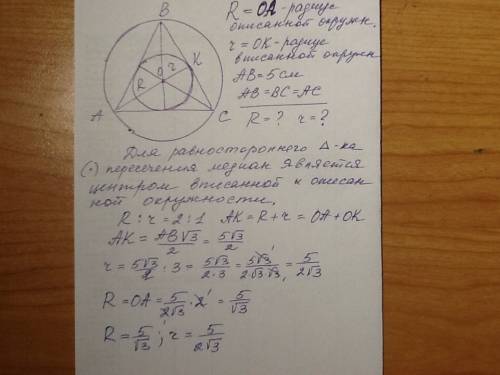 B
O
r
R
K
A
C
R = OA - радиус
описанной окружн.
r = OK - радиус
вписанной окружн
AB = 5 см
AB = BC = AC
R = ? r = ?
Для равностороннего Δ-ка
(·) пересечения медиан является
центром вписанной и описан
ной окружности.
R : r = 2 : 1 AK = R + r = OA + OK
AK = AB√3/2 = 5√3/2
r = 5√3/2 : 3 = 5√3/2·3 = 5√3/2√3√3 = 5/2√3
R = OA = 5/2√3 · 2 = 5/√3
R = 5/√3 ; r = 5/2√3